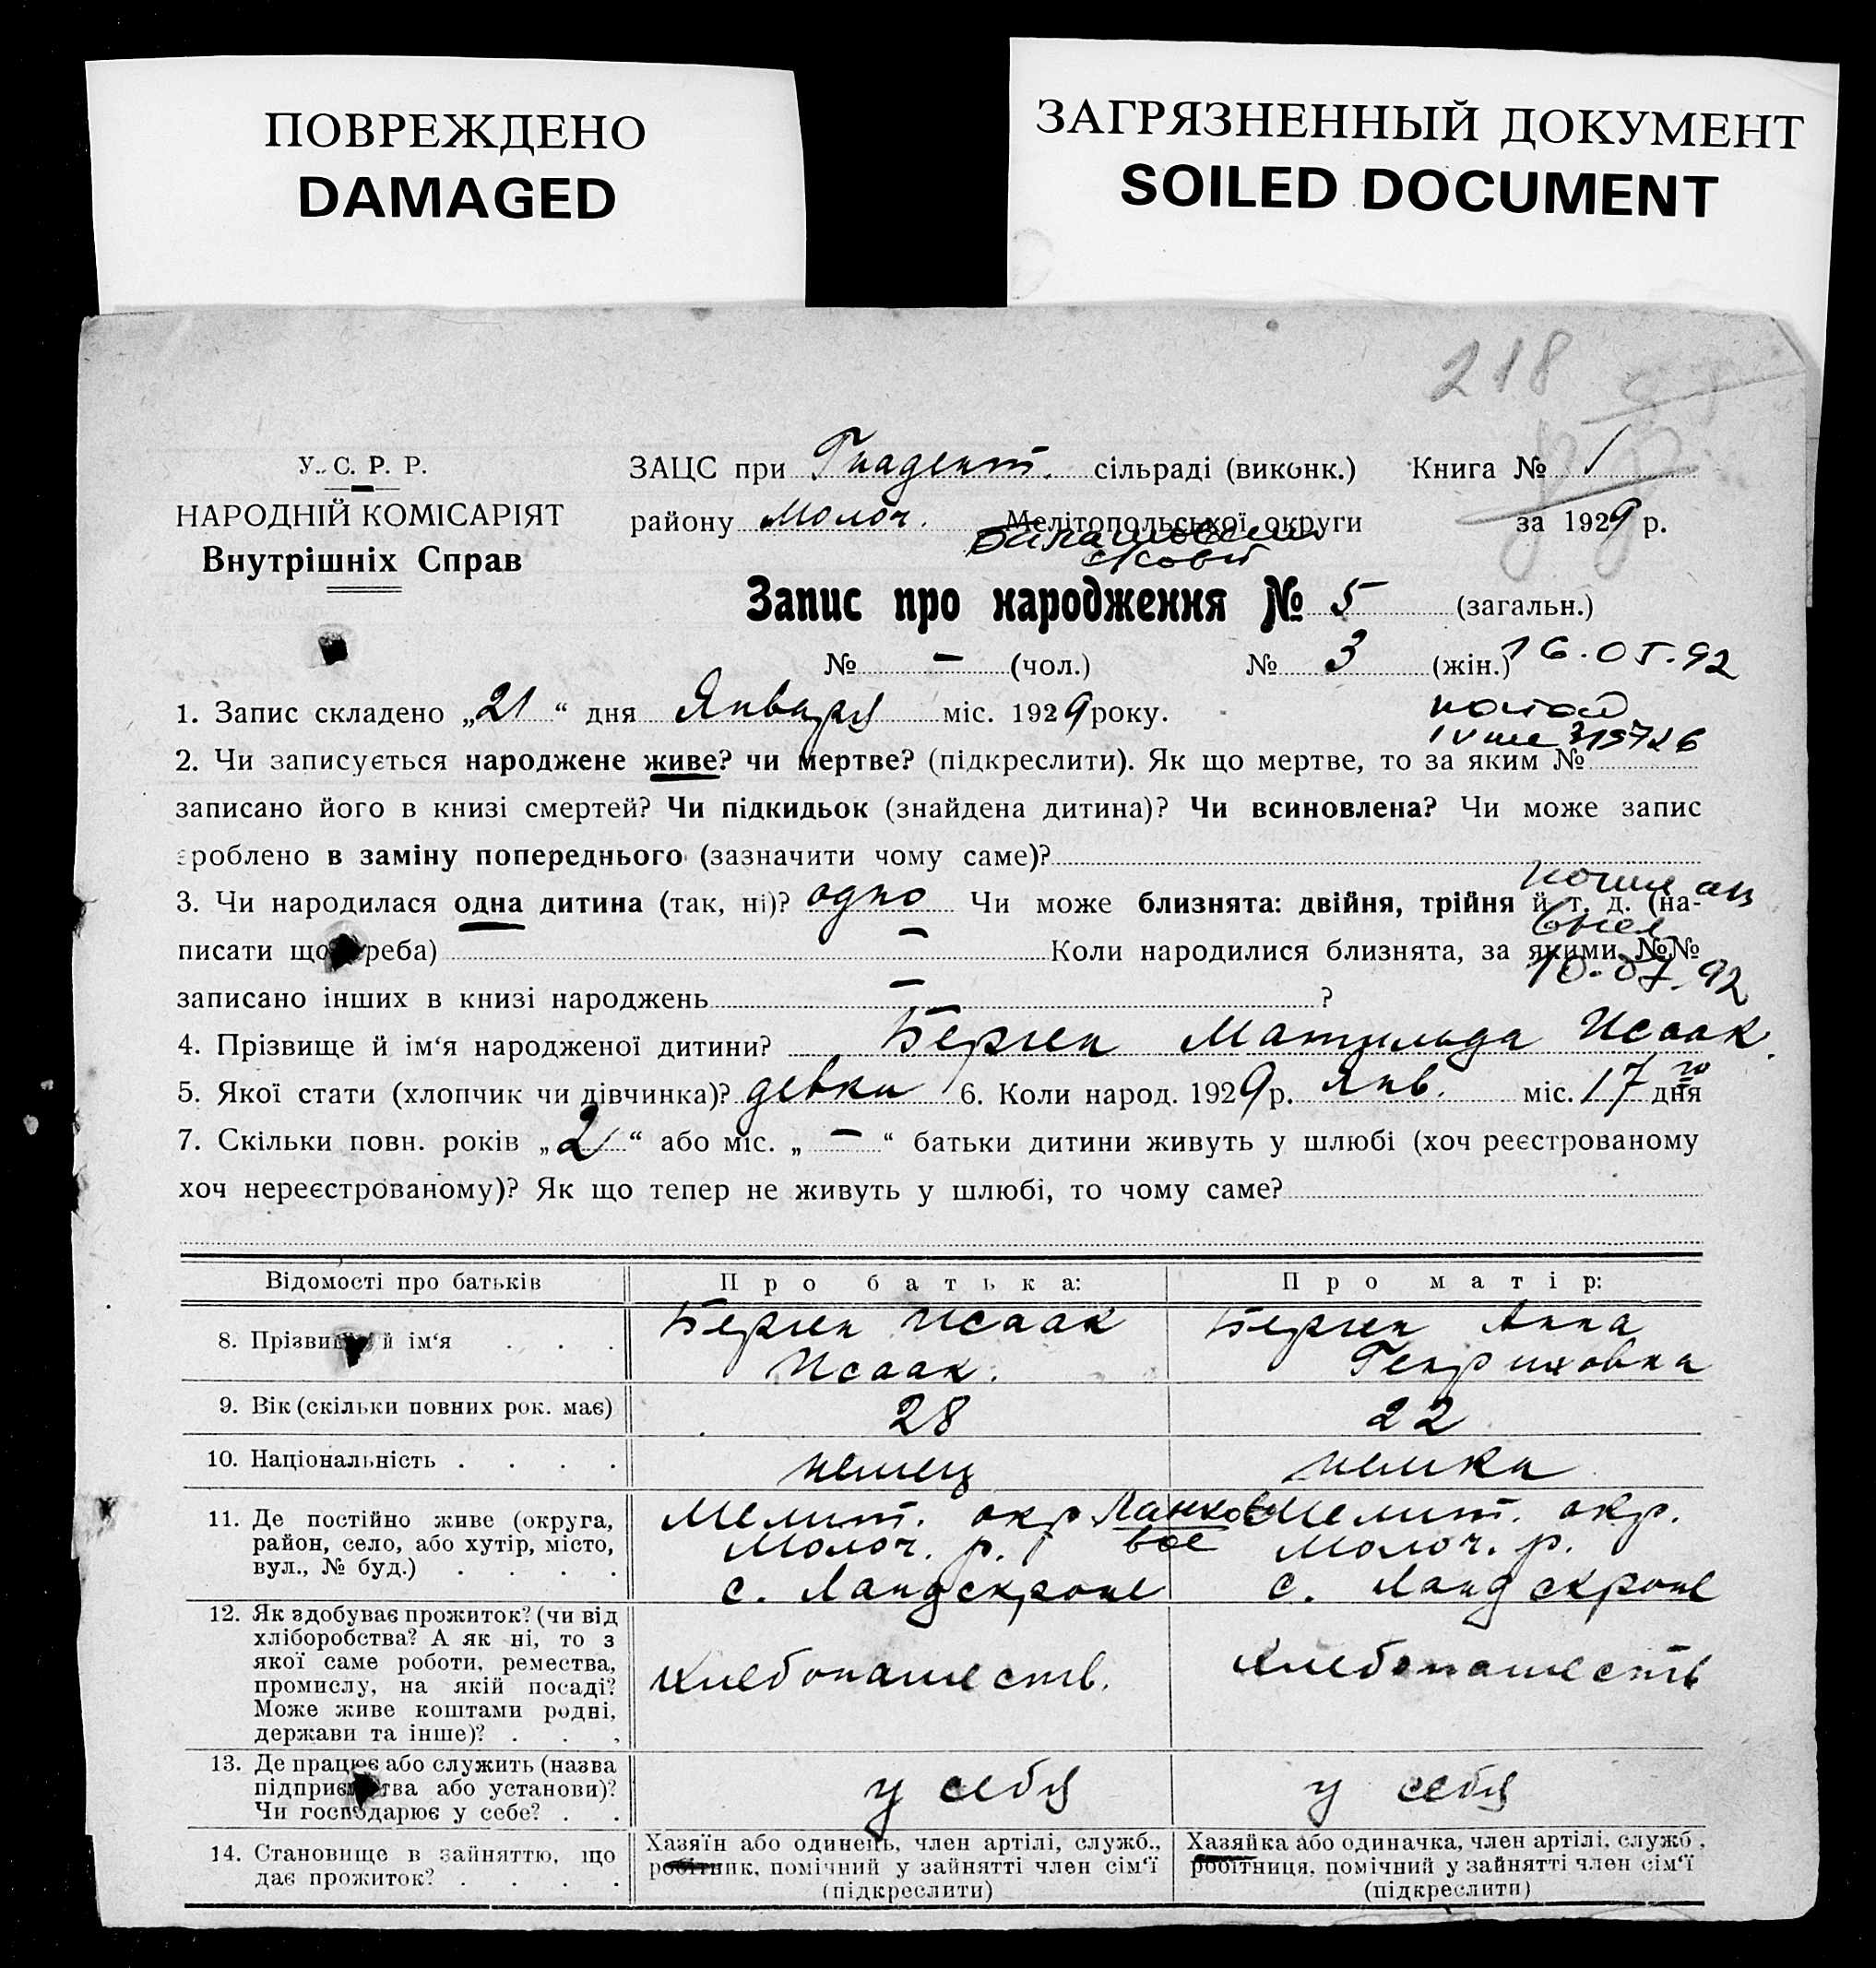 ПОВРЕЖДЕНО
DAMAGED
ЗАГРЯЗНЕННЫЙ ДОКУМЕНТ
SOILED DOCUMENT
218
У. С. Р. Р.
НАРОДНІЙ КОМІСАРІЯТ
Внутрішніх Справ
ЗАЦС при Гнадент. сільраді (виконк.) Книга № 1
району Молоч. Мелітопольської округи за 1929 р.
Запис про народження № 5 (загальн.)
№ — (чол.) № 3 (жін.) 16.05.92
1. Запис складено „21“ дня Января міс. 1929 року.
2. Чи записується народжене живе? чи мертве? (підкреслити). Як що мертве, то за яким №
записано його в книзі смертей? Чи підкидьок (знайдена дитина)? Чи всиновлена? Чи може запис
зроблено в заміну попереднього (зазначити чому саме)?
3. Чи народилася одна дитина (так, ні)? одно Чи може близнята: двійня, трійня й т. д. (на-
писати що треба) — Коли народилися близнята, за якими №№
10.07.92
записано інших в книзі народжень — ?
4. Прізвище й ім‘я народженої дитини? Берген Матильда Исаак.
5. Якої стати (хлопчик чи дівчинка)? девка 6. Коли народ. 1929 р. Янв. міс. 17 го дня
7. Скільки повн. років „2“ або міс. „—“ батьки дитини живуть у шлюбі (хоч реєстрованому
хоч нереєстрованому)? Як що тепер не живуть у шлюбі, то чому саме?
Відомості про батьків Про батька: Про матір:
8. Прізвище й ім‘я . . . Берген Исаак Исаак. Берген Анна Генриховна
9. Вік (скільки повних рок. має) 28 22
10. Національність . . . . немец немка
11. Де постійно живе (округа,
район, село, або хутір, місто,
вул., № буд.) . . . .
Мелит. окр. Мелит. окр.
Молоч. р. Молоч. р.
с. Ландскроне с. Ландскроне
12. Як здобуває прожиток? (чи від
хліборобства? А як ні, то з
якої саме роботи, ремества,
промислу, на якій посаді?
Може живе коштами родні,
держави та інше)? . . .
хлебопашеств. хлебопашеств
13. Де працює або служить (назва
підприємства або установи)?
Чи господарює у себе? . .
у себя у себя
14. Становище в зайняттю, що
дає прожиток? . . . .
Хазяїн або одинець, член артілі, служб.,
робітник, помічний у зайнятті член сім‘ї
(підкреслити)
Хазяйка або одиначка, член артілі, служб.,
робітниця, помічний у зайнятті член сім‘ї
(підкреслити)